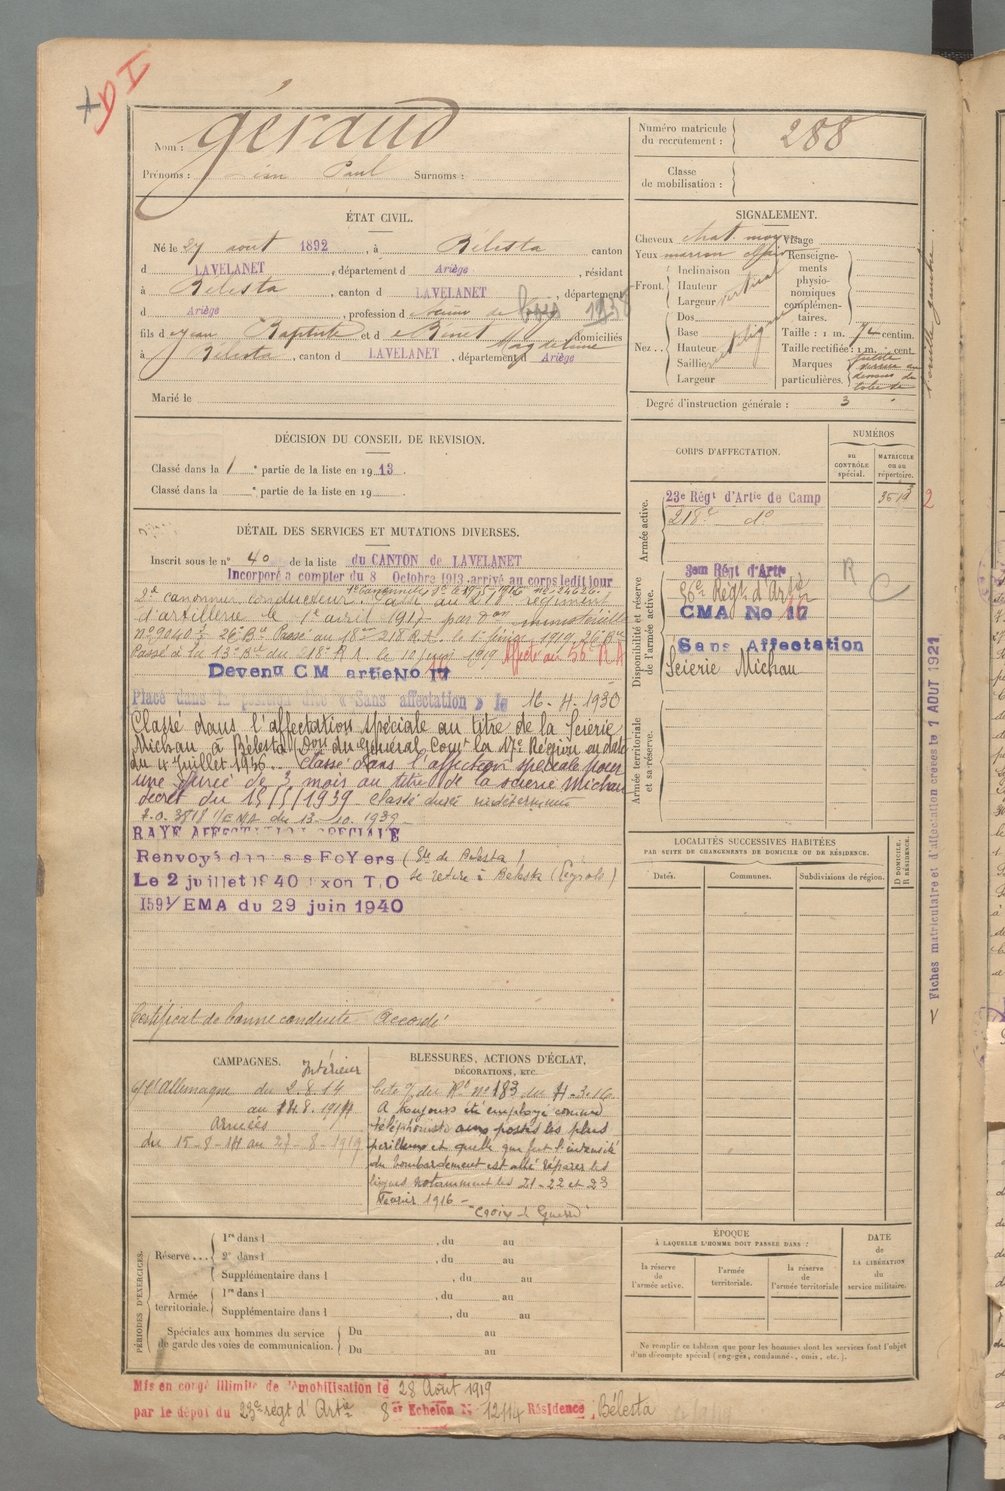 Nom : Géraud
Prénoms : Jean Paul Surnoms :
Numéro matricule du recrutement : 288
Classe de mobilisation :
ÉTAT CIVIL.
Né le 27 août 1892, à Bélesta canton
d LAVELANET, département d Ariège, résidant
à Bélesta, canton d LAVELANET, département
d Ariège, profession d scieur de long bois
fils d Jean Baptiste et d Binet Magdeleine domiciliés
à Bélesta, canton d LAVELANET, département d Ariège
Marié le
SIGNALEMENT.
Cheveux chat. moyen Visage
Yeux marron
Front. Inclinaison vertical
Hauteur
Largeur
Dos
Nez .. Base
Hauteur
Saillie
Largeur
Renseignements physionomiques complémentaires.
Taille : 1 m. centim.
Taille rectifiée : 1 m. cent.
Marques particulières.
Degré d'instruction générale : 3
DÉCISION DU CONSEIL DE REVISION.
Classé dans la 1e partie de la liste en 1913.
Classé dans la e partie de la liste en 19
DÉTAIL DES SERVICES ET MUTATIONS DIVERSES.
Inscrit sous le n° 40 de la liste du CANTON de LAVELANET
Incorporé a compter du 8 Octobre 1913 arrivé au corps ledit jour
2e canonnier conducteur. Passé au 218e régiment
d'artillerie le 1er avril 1917 par don ministérielle
Passé à la 13e Bie du 218e R A. le 10 1919 Affecté au 56e R A
Devenu CM artie No 17
16
Placé dans la position dite « Sans affectation » le 16-4-1930
Classé dans l'affectation spéciale au titre de la Scierie
Michau à Bélesta (Don du Général Comt la 17e Région en date
du 4 Juillet 1936.. Classé dans l'affection spéciale pour
une durée de 3 mois au titre de la scierie Michau
décret du 15/5/1939 - Classé durée indéterminée
F.O. 3818 1/EMA du 13-10-1939 -
RAYE AFFECTATION SPECIALE
Renvoyé dans ses FoYers (Gie de Bélesta)
Le 2 juillet 1940 Exon T,O se retire à Bélesta
1591/EMA du 29 juin 1940
Certificat de bonne conduite Accordé
CORPS D'AFFECTATION.
NUMÉROS
au CONTRÔLE spécial.
MATRICULE ou au répertoire.
Armée active.
23e Régt d'Artie de Camp
218e do
Disponibilité et réserve de l'armée active.
3em Régt d'Artie
56e Régt d'Artie
CMA No 17
Sans Affectation
Scierie Michau
R
C
Armée territoriale et sa réserve.
Fiches matriculaire et d'affectation créées le 1 AOUT 1921
LOCALITÉS SUCCESSIVES HABITÉES
PAR SUITE DE CHANGEMENTS DE DOMICILE OU DE RÉSIDENCE.
Dates. Communes. Subdivisions de région. D DOMICILE. R RÉSIDENCE.
CAMPAGNES.
Intérieur
c/ l'Allemagne du 2.8.14
au 14.8.1914
Armées
du 15-8-14 au 27-8-1919
BLESSURES, ACTIONS D'ÉCLAT,
DÉCORATIONS, ETC.
Cité O/ du Rt no 183 du 4-3-16
A toujours été employé comme
téléphoniste aux postes les plus
périlleux et quelle que fut l'intensité
du bombardement est allé réparer les
lignes notamment les 21-22 et 23
Février 1916 -
"Croix de Guerre"
PÉRIODES D'EXERCICES.
Réserve ... 1re dans l , du au
2e dans l , du au
Supplémentaire dans l , du au
Armée territoriale. 1re dans l , du au
Supplémentaire dans l , du au
Spéciales aux hommes du service de garde des voies de communication. Du au
Du au
ÉPOQUE
À LAQUELLE L'HOMME DOIT PASSER DANS :
la réserve de l'armée active.
l'armée territoriale.
la réserve de l'armée territoriale
DATE de LA LIBÉRATION du service militaire.
Ne remplir ce tableau que pour les hommes dont les services font l'objet
d'un décompte spécial (engagés, condamnés, omis, etc.).
Mis en congé illimité de démobilisation le 28 Août 1919
par le dépôt du 23e régt d'Artie 8er Echelon N° 12114 Résidence Bélesta